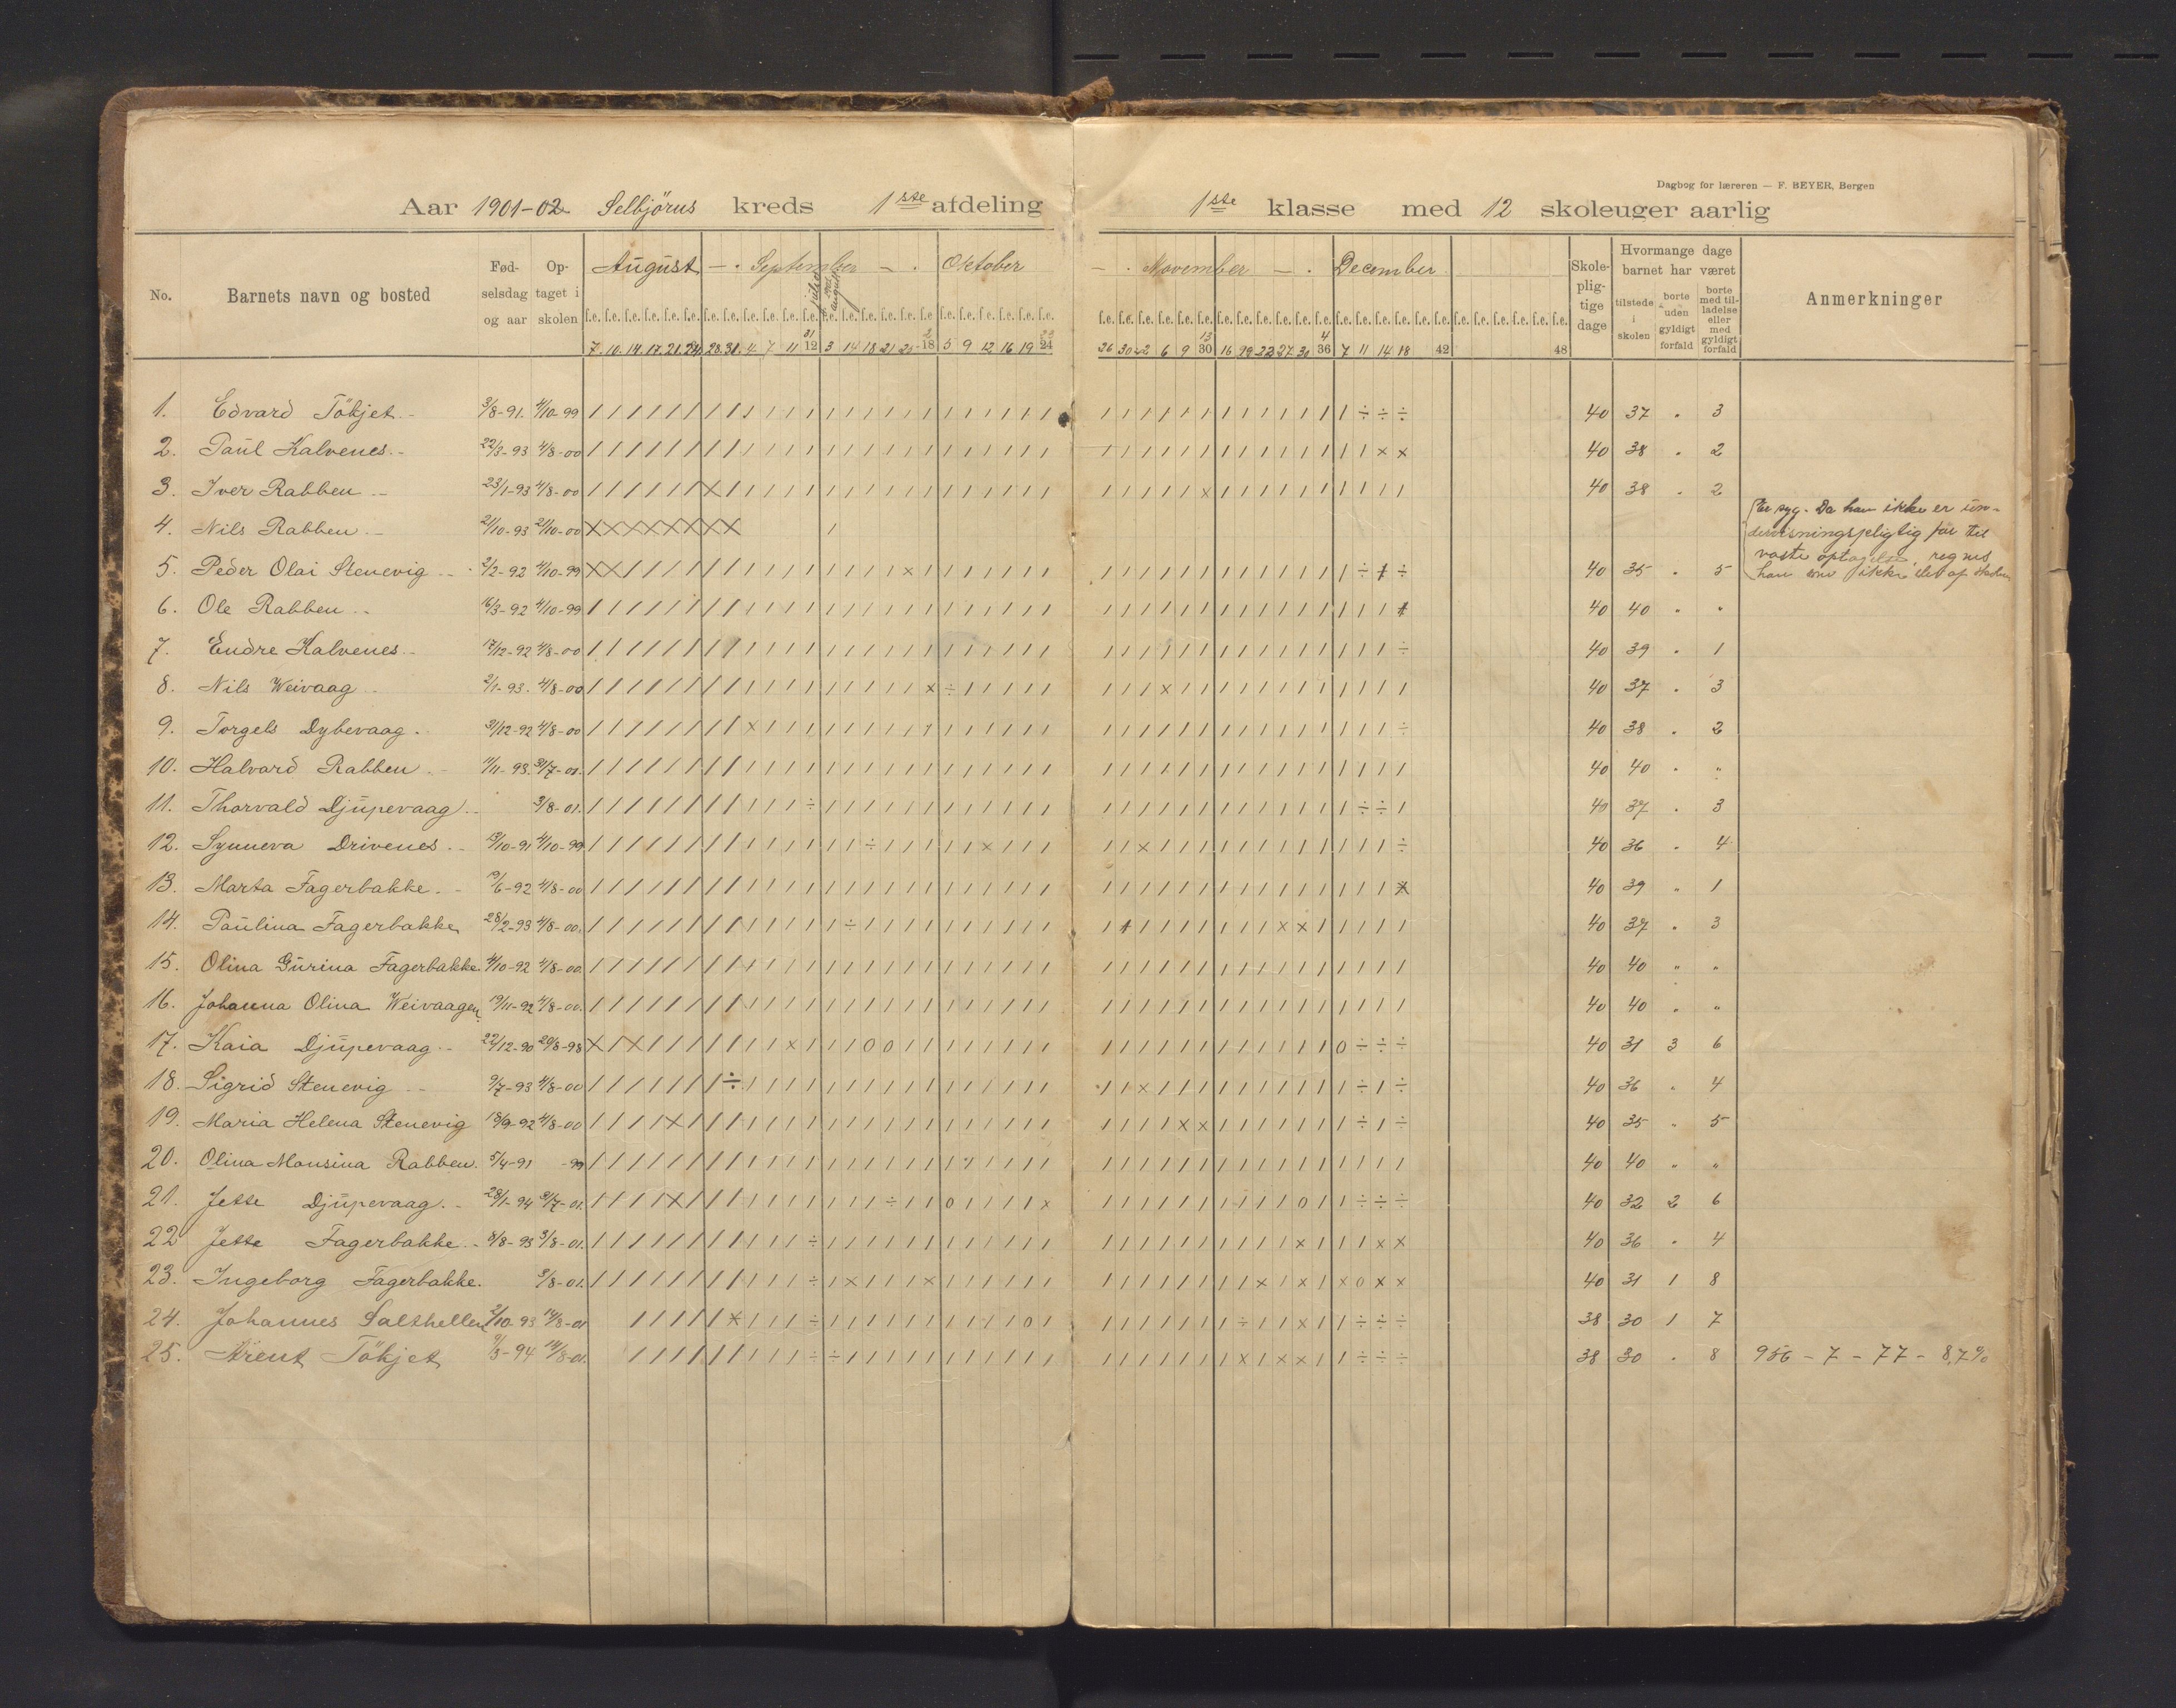 Dagbog for læreren — F. BEYER, Bergen
Aar 1901-02 Selbjörns kreds 1ste afdeling 1ste klasse med 12 skoleuger aarlig
No. Barnets navn og bosted Fødselsdag og aar Optaget i skolen August - . September - . Oktober - . November - . December Skolepligtige dage Hvormange dage barnet har været tilstede i skolen borte uden gyldigt forfald borte med tilladelse eller med gyldigt forfald Anmerkninger
f.e. f.e. f.e. f.e. f.e. f.e. f.e. f.e. f.e. f.e. f.e. f.e. f.e. f.e. f.e. f.e. f.e. f.e. f.e. f.e. f.e. f.e. f.e. f.e.
7 10 14 17 21 24 28 31 4 7 11 12 3 14 18 21 25 18 5 9 12 16 19 24 26 30 2 6 9 30 16 19 22 27 30 36 7 11 14 18 42 48
1. Edvard Tökjet 3/8-91. 4/10-99 40 37 " 3
2. Paul Kalvenes 22/3-93 4/8-00 40 38 " 2
3. Iver Rabben 23/1-93 4/8-00 40 38 " 2
4. Nils Rabben 21/10-93 21/10-00 Er syg. Da han ikke er un-
dervisningspligtig før til
5. Peder Olai Stenevig 2/2-92 4/10-99 40 35 " 5 høste optagelse, regnes
han som ikke del af skolen
6. Ole Rabben 16/3-92 4/10-99 40 40 " "
7. Endre Kalvenes 17/12-92 4/8-00 40 39 " 1
8. Nils Weivaag 2/1-93. 4/8-00 40 37 " 3
9. Torgels Dybevaag 31/12-92 4/8-00 40 38 " 2
10. Halvard Rabben 40 40 " "
11. Thorvald Djupevaag 3/8-01. 40 37 " 3
12. Synneva Drivenes 4/10-99 40 36 " 4
13. Marta Fagerbakke 4/8-00 40 39 " 1
14. Paulina Fagerbakke 28/2-93 4/8-00. 40 37 " 3
15. Olina Gurina Fagerbakke 4/8-00. 40 40 " "
16. Johanna Olina Weivaagen 19/11-92 4/8-00. 40 40 " "
17. Kaia Djupevaag 22/12-90 20/8-98 40 31 3 6
18. Sigrid Stenevig 9/7-93 4/8-00 40 36 " 4
19. Maria Helena Stenevig 18/9-92 4/8-00 40 35 " 5
20. Olina Monsina Rabben. 5/4-91 -99 40 40 " "
21. Jette Djupevaag 28/1-94 31/7-01. 40 32 2 6
22 Jette Fagerbakke 8/8-93 3/8-01. 40 36 " 4
23. Ingeborg Fagerbakke. 3/8-01. 40 31 1 8
24. Johannes Salthellen 2/10-93 14/8-01 38 30 1 7
25. Arent Tökjet 14/8-01. 38 30 " 8 956 - 7 - 77 - 8,7%